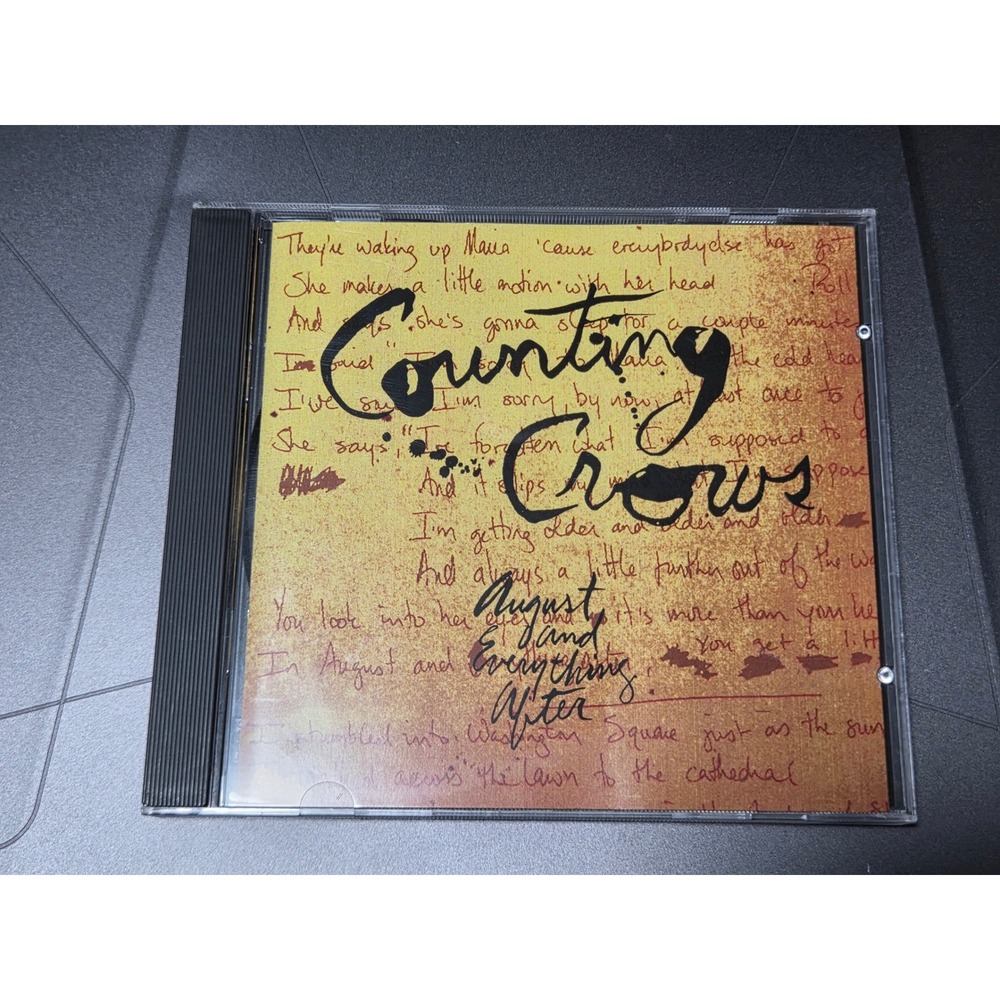 They're waking up Maria 'cause everybody else has got
She makes a little motion with her head Roll
And says she's gonna sleep for a couple minutes
I said "I'm sorry" to Maria the cold hear
I've say I'm sorry by now, at least once to
She says, "I've forgotten what I'm supposed to
And it slips my mind
I'm getting older and older and older
And always a little further out of the wa
You look into her eyes and it's more than your he
In August and You get a litt
I stumbled into Washington Square just as the sun
across the lawn to the cathedral
Counting
Crows
August
and
Everything
After